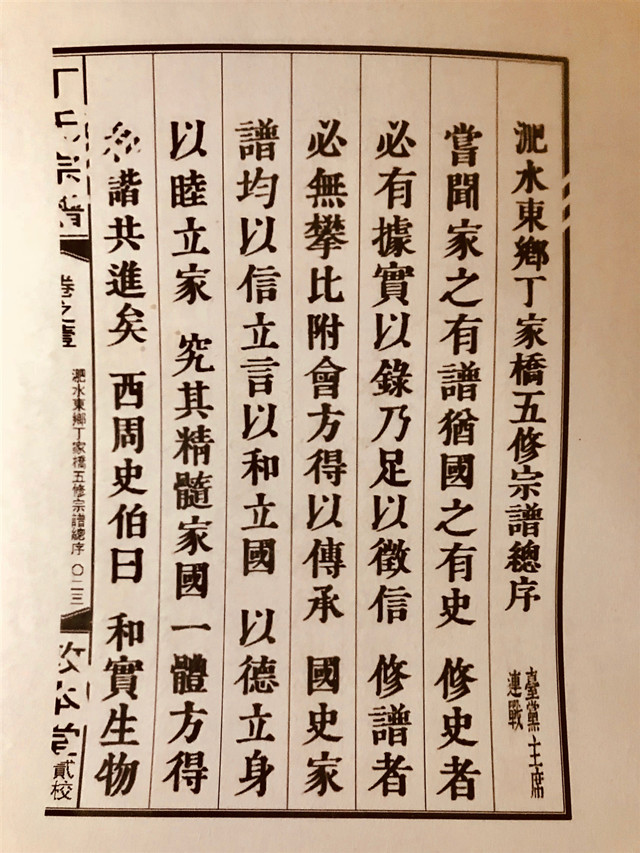 淝水東鄉丁家橋五修宗譜總序 臺黨主席
連戰
嘗聞家之有譜猶國之有史 修史者
必有據實以錄乃足以徵信 修譜者
必無攀比附會方得以傳承 國史家
譜均以信立言以和立國 以德立身
以睦立家 究其精髓家國一體方得
諧共進矣 西周史伯曰 和實生物
丁氏宗譜
卷之壹
淝水東鄉丁家橋五修宗譜總序 〇二三
本堂
貳校